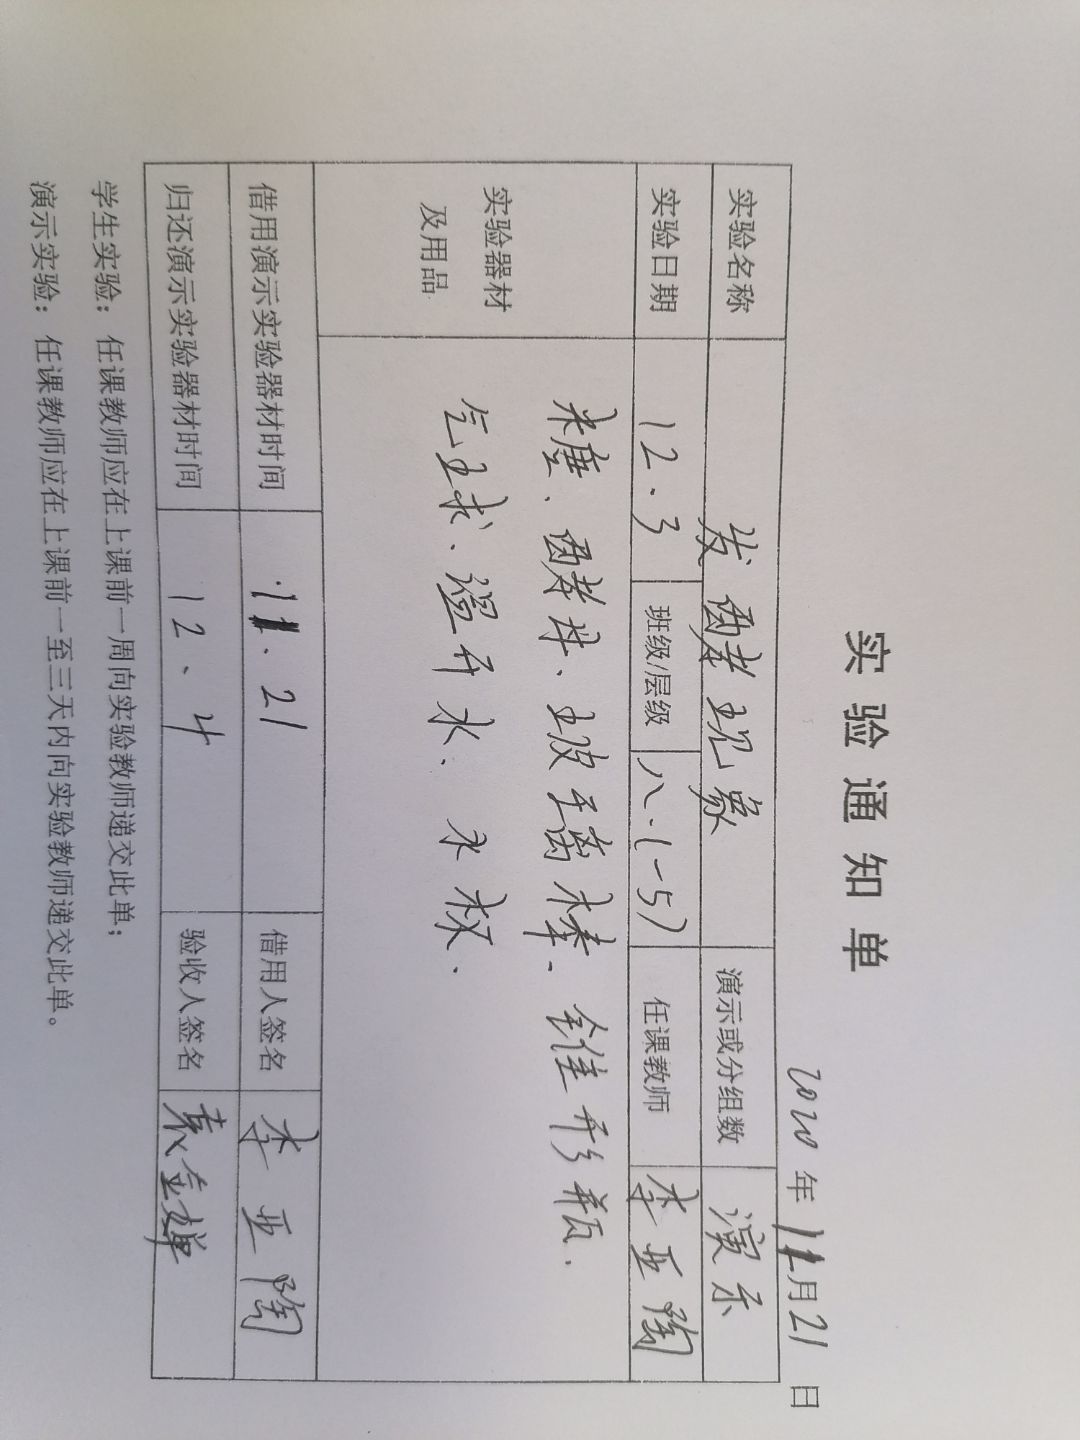 实验通知单
2020年11月21日
实验名称 发酵现象 演示或分组数 演示
实验日期 12.3 班级/层级 八.(1-5) 任课教师 李亚陶
实验器材及用品 木塞、酵母、玻璃棒、锥形瓶.
气球、温开水、水槽.
借用演示实验器材时间 11.21 借用人签名 李亚陶
归还演示实验器材时间 12、4 验收人签名 袁金婵
学生实验：任课教师应在上课前一周向实验教师递交此单；
演示实验：任课教师应在上课前一至三天内向实验教师递交此单。